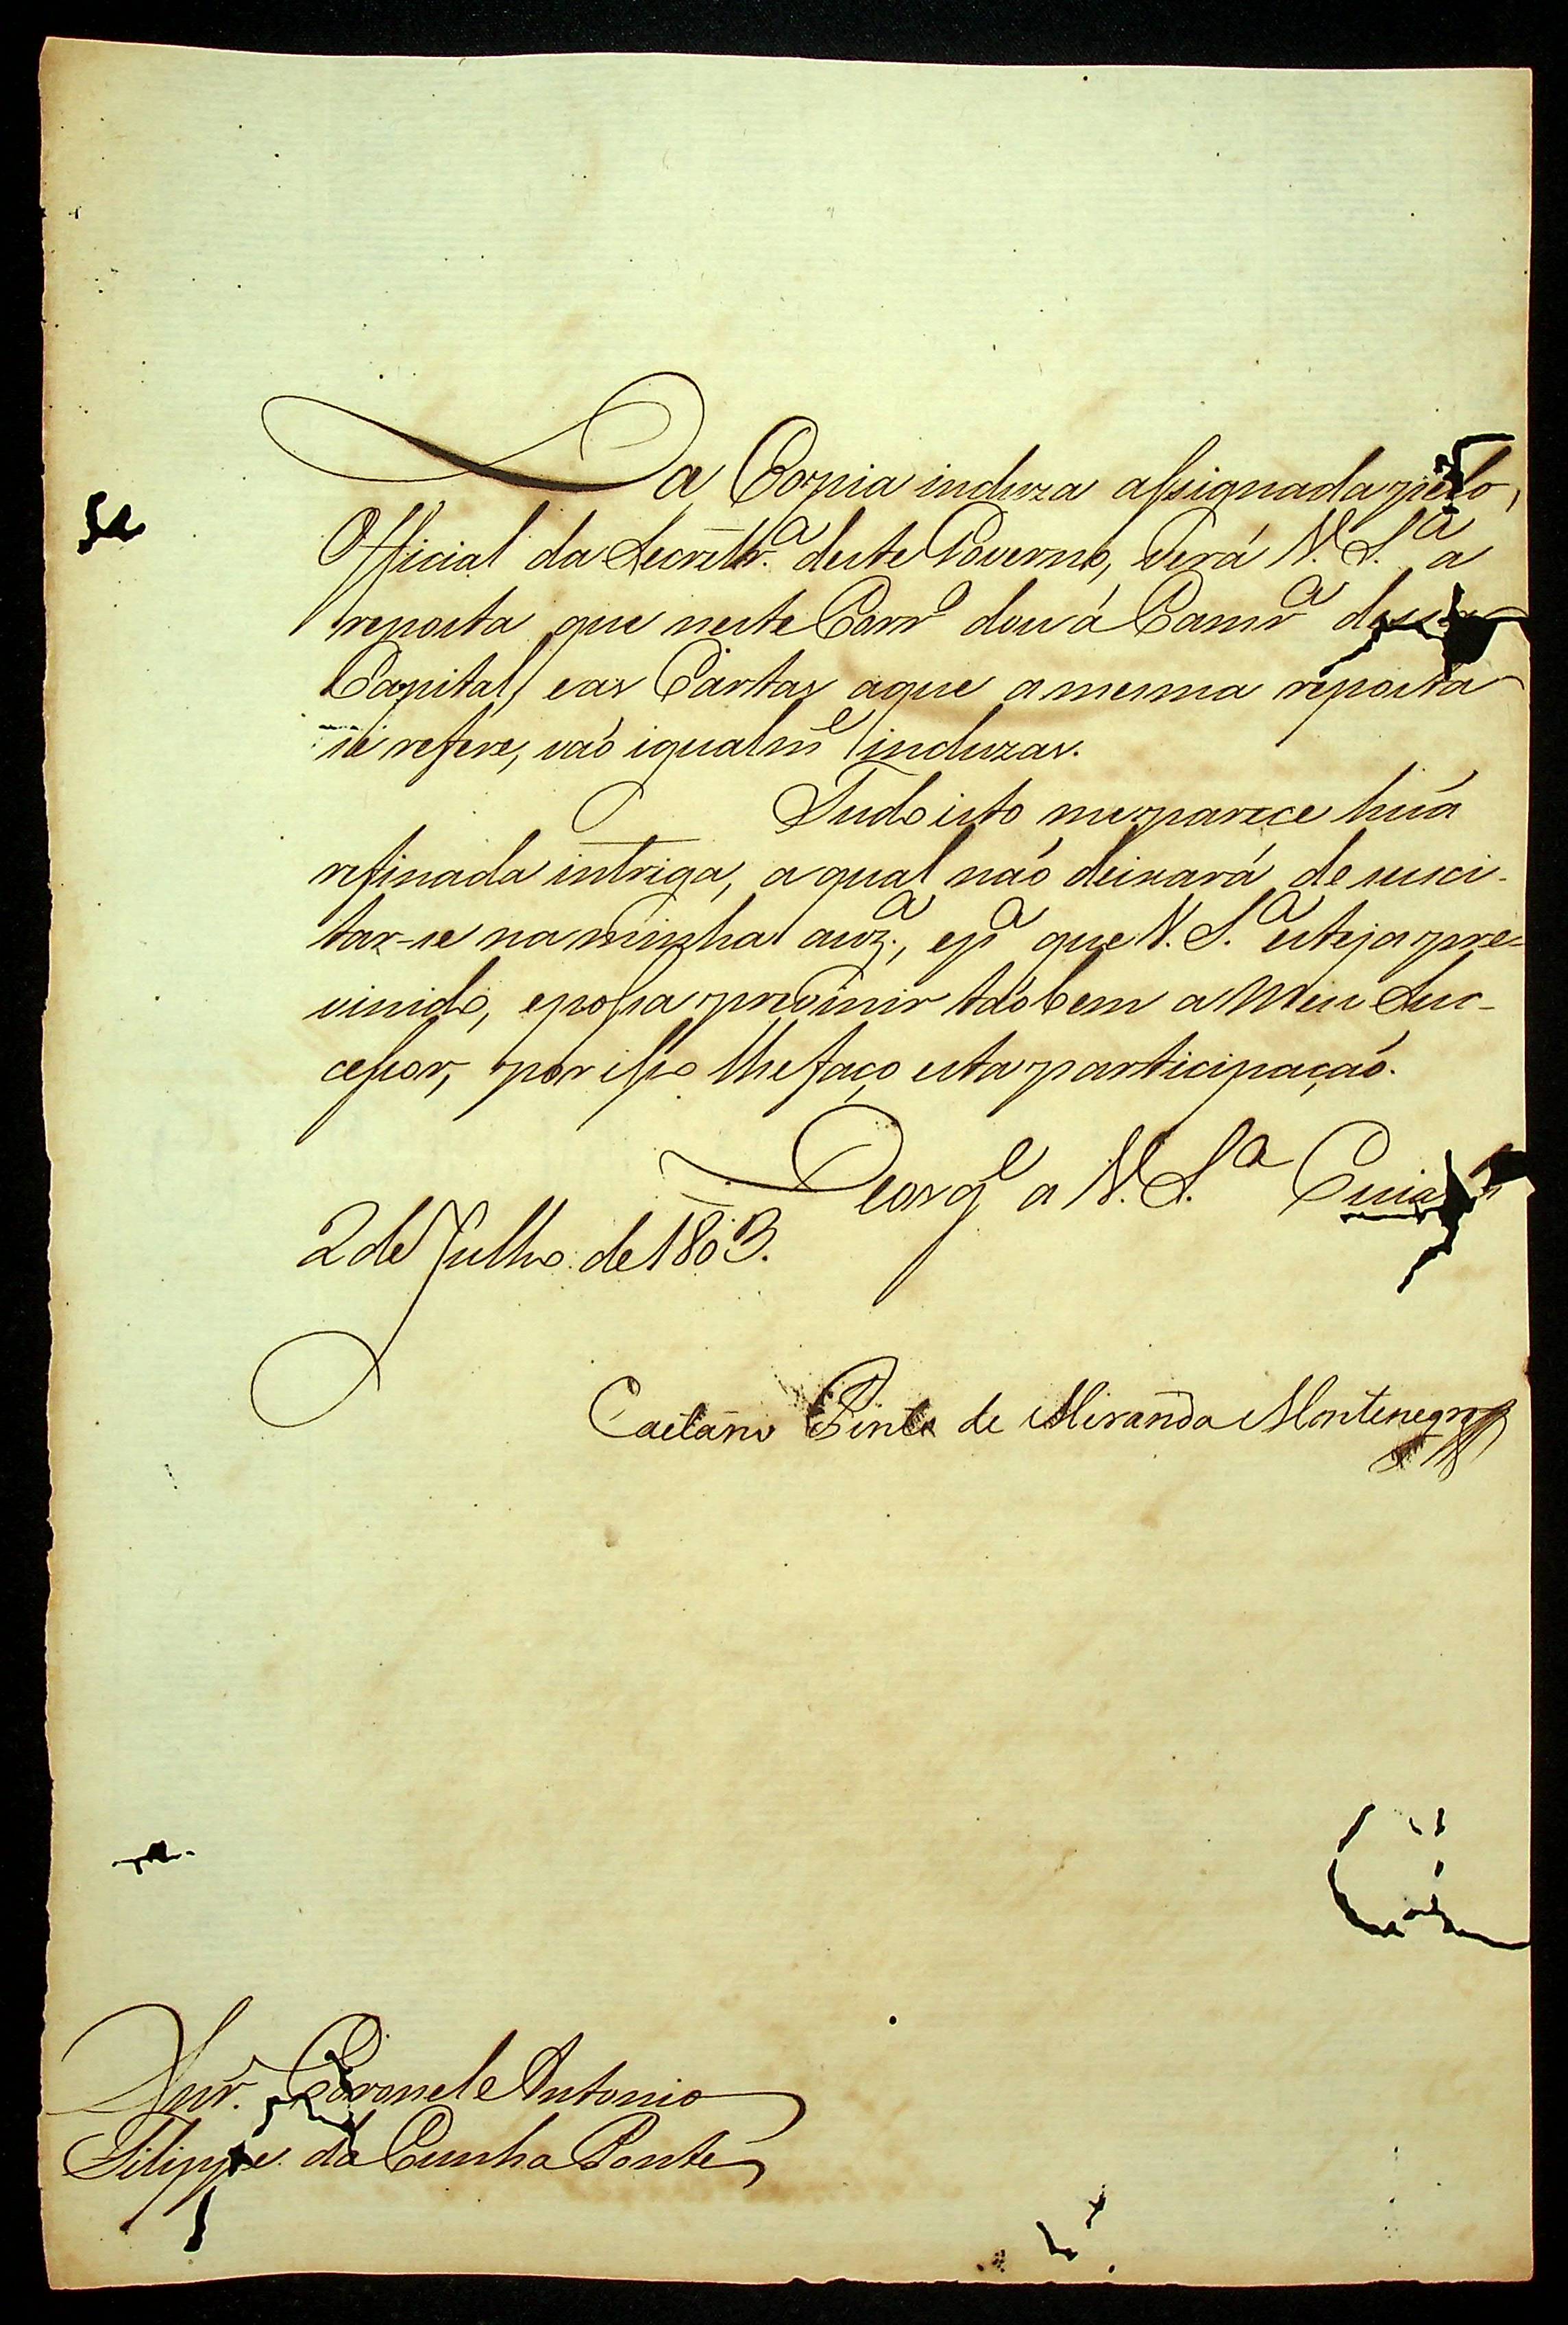 Da Copia incluza assignada pelo
Official da Secretr.ª deste Governo, verá V. S.ª a
reposta que neste Corrº dou á Camrª dessa
Capital, eas Cartas aque amesma reposta
se refere, vaó igualmᵉ incluzas.
Tudo isto meparece húa
refinada intriga, aqual naó deixará de susci-
tar-se na minha auzª., epª que V. S.ª esteja pre-
vinido, epossa previnir táobem a Meu Suc-
cessor, por isso lhefaço esta participaçaó.
Deos gᵉ a V. S.ª Cuiabá
2 de Julho de 1803.
Caetano Pinto de Miranda Montenegro
Snr. Coronel Antonio
Filippe da Cunha Ponte